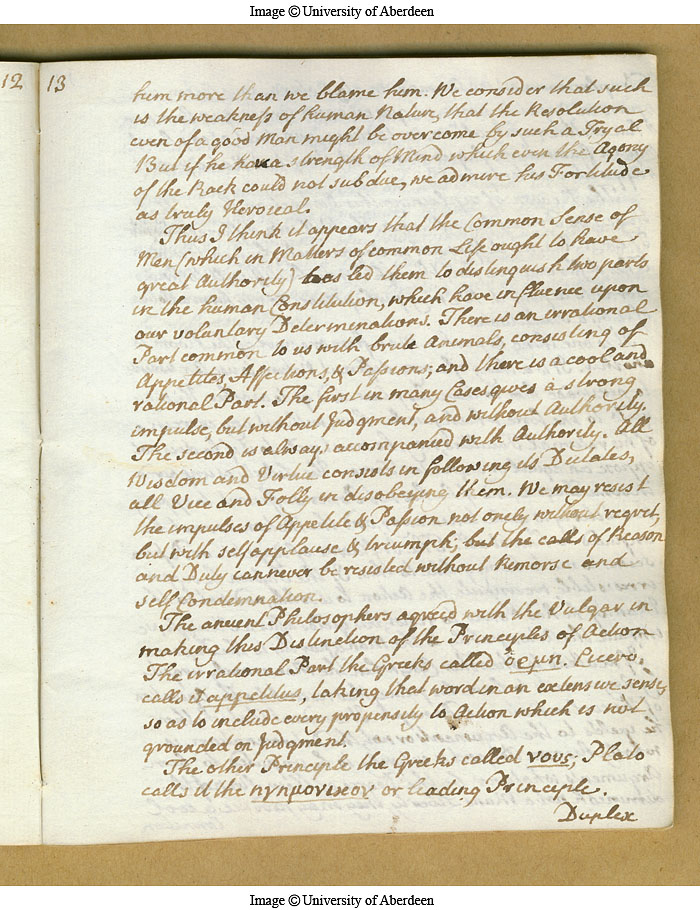 Image © University of Aberdeen
12
13
him more than we blame him. We consider that such
is the weakness of human Nature, that the Resolution
even of a good Man might be overcome by such a Tryal
But if he have a strength of Mind which even the Agony
of the Rack could not subdue, we admire his Fortitude
as truly Heroical.
Thus I think it appears that the Common Sense of
Men (which in Matters of common Life ought to have
great Authority) has led them to distinguish two parts
in the human Constitution, which have influence upon
our voluntary Determinations. There is an irrational
Part common to us with brute Animals, consisting of
Appetites, Affections, & Passions; and there is a cool and
rational Part. The first in many Cases gives a strong
impulse, but without Judgment, and without Authority.
The second is always accompanied with Authority. All
Wisdom and Virtue consists in following its Dictates,
all Vice and Folly in disobeying them. We may resist
the impulses of Appetite & Passion not onely without regret,
but with self applause & triumph; but the calls of Reason
and Duty can never be resisted without Remorse and
self Condemnation.
The ancient Philosophers agreed with the Vulgar in
making this Distinction of the Principles of Action
The irrational Part the Greeks called ὁρμη. Cicero,
calls it appetitus, taking that word in an extensive sense,
so as to include every propensity to Action which is not
grounded on Judgment.
The other Principle the Greeks called νους; Plato
calls it the ηγημονικον or leading Principle.
Duplex
Image © University of Aberdeen